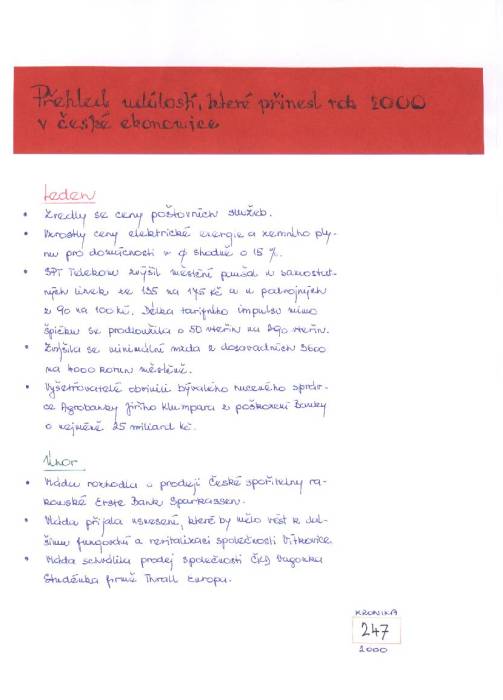 Přehled událostí, které přinesl rok 2000
v české ekonomice
Leden
• Zvedly se ceny poštovních služeb.
• Vzrostly ceny elektrické energie a zemního ply-
nu pro domácnosti v φ shodně o 15 %.
• SPT Telekom zvýšil měsíční paušál u samostat-
ných linek ze 135 na 175 Kč a u podvojných
z 90 na 100 Kč. Délka tarifního impulsu mimo
špičku se prodloužila o 50 vteřin na 290 vteřin.
• Zvýšila se minimální mzda z dosavadních 3600
na 4000 korun měsíčně.
• Vyšetřovatelé obvinili bývalého nuceného správ-
ce Agrobanky Jiřího Klumpara z poškození banky
o nejméně 25 miliard Kč.
Únor
• Vláda rozhodla o prodeji České spořitelny ra-
kouské Erste Bank Sparkassen.
• Vláda přijala usnesení, které by mělo vést k dal-
šímu fungování a revitalizaci společnosti Vítkovice.
• Vláda schválila prodej společnosti ČKD Vagonka
Studénka firmě Thrall Europa.
KRONIKA
247
2000